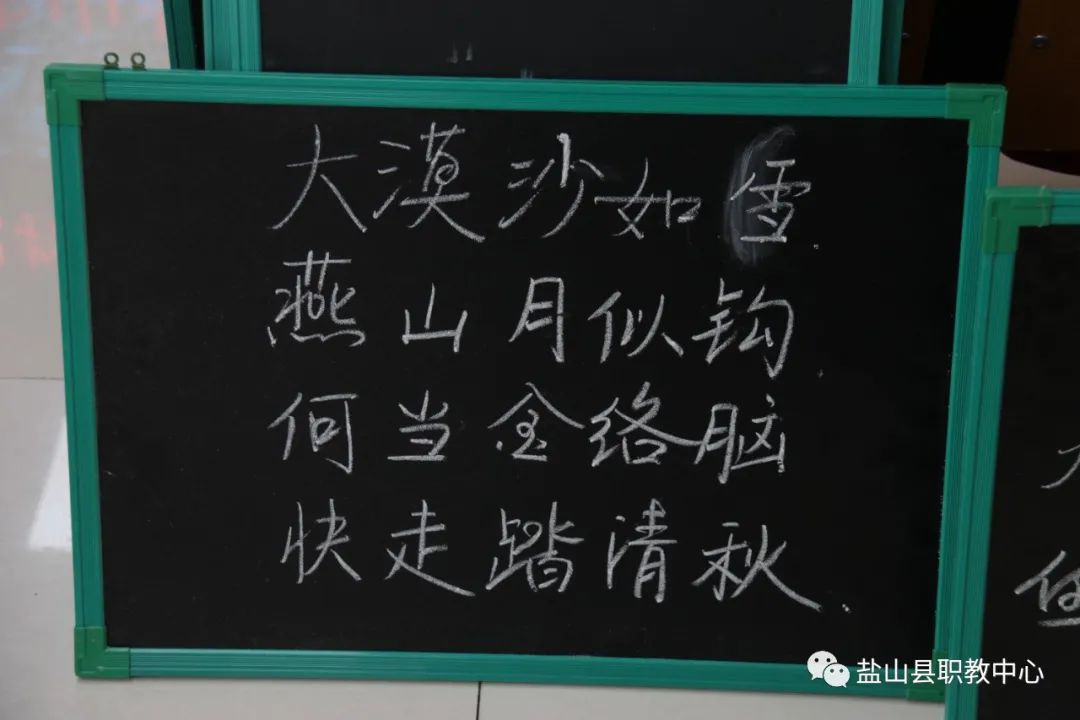 大漠沙如雪
燕山月似钩
何当金络脑
快走踏清秋.
盐山县职教中心